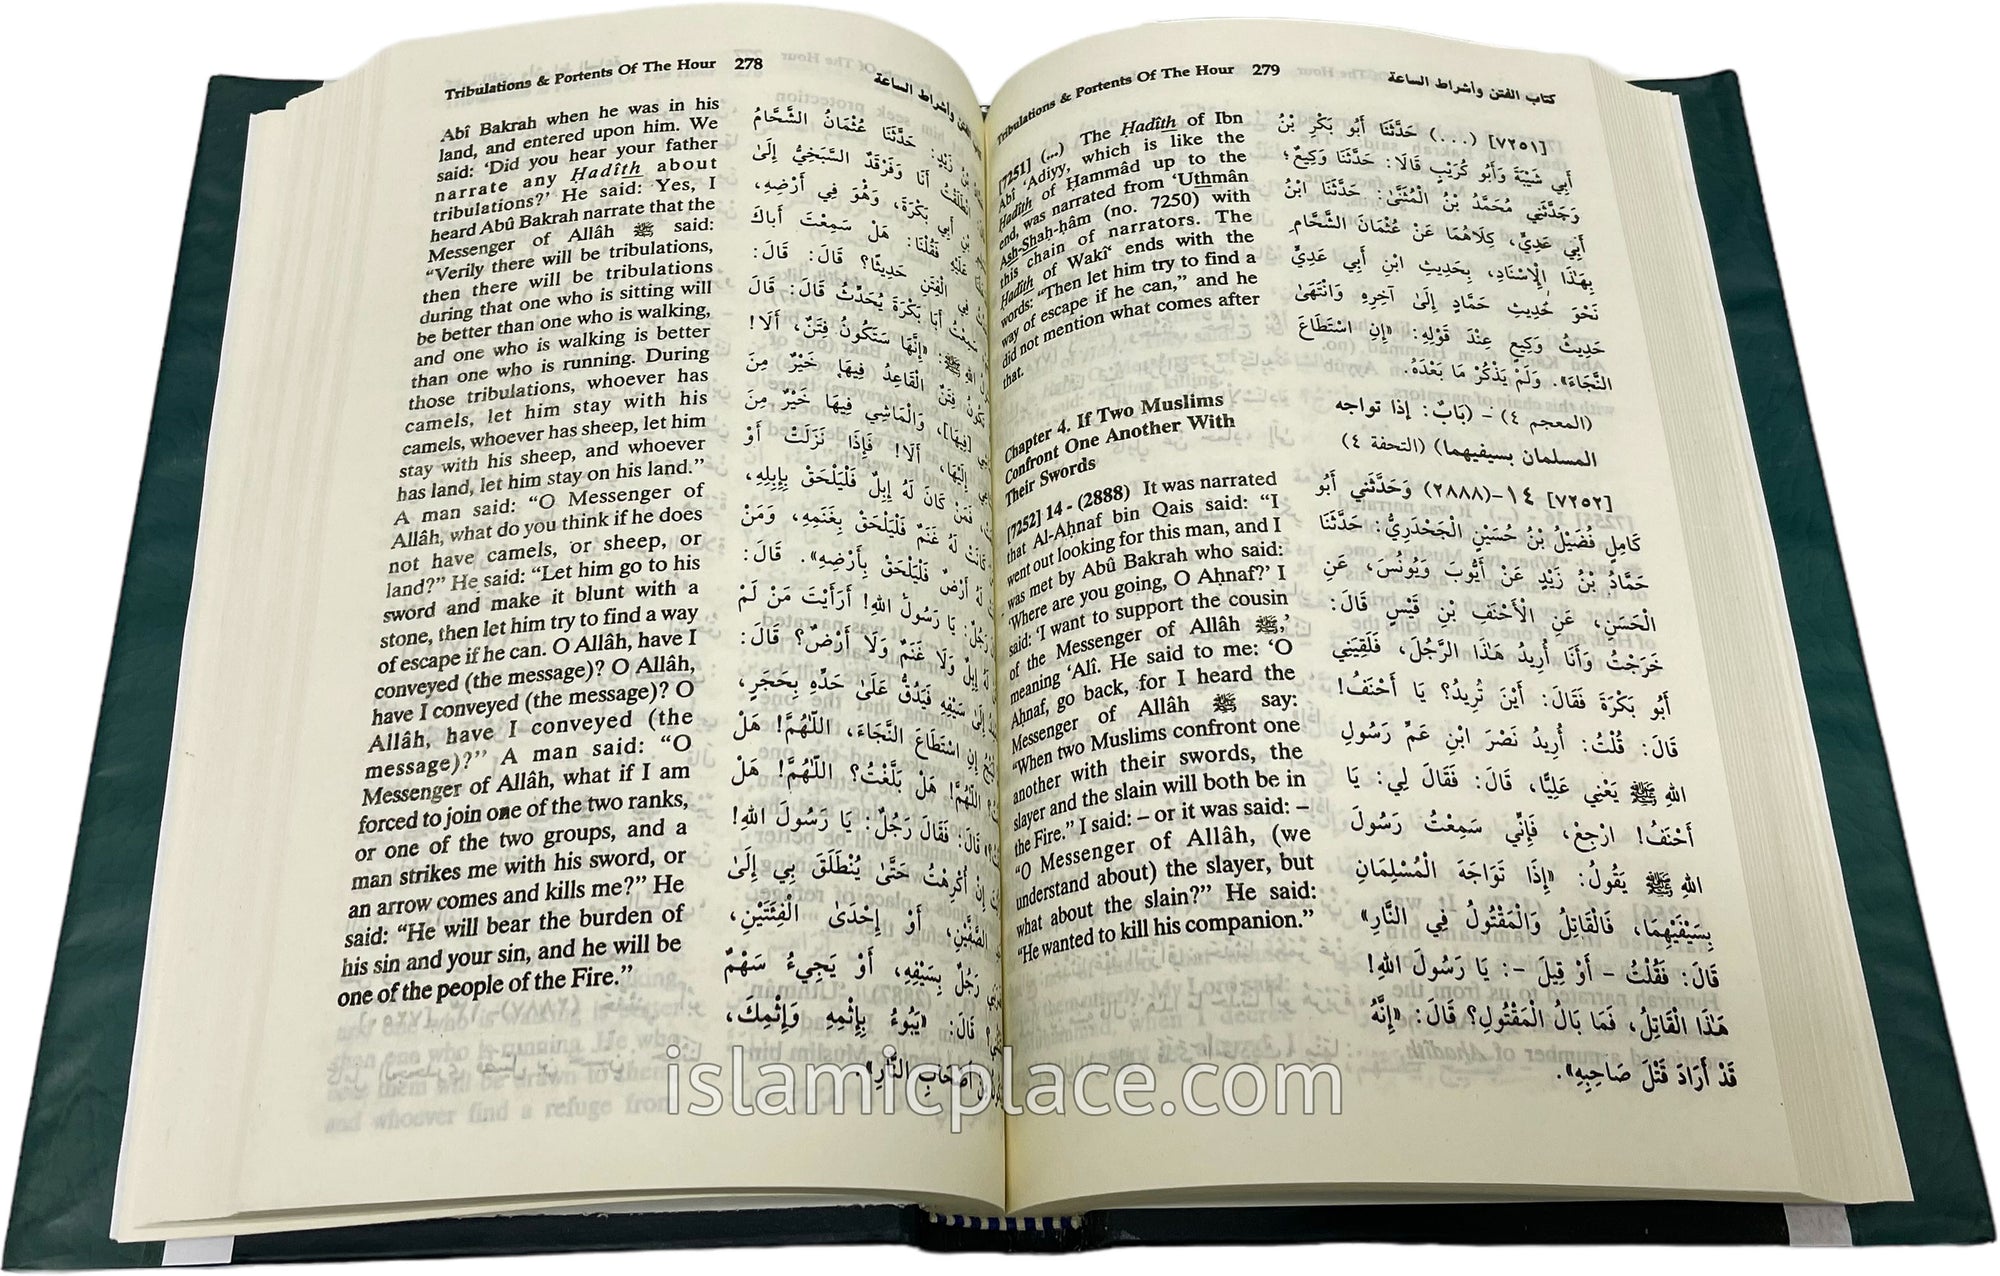 Tribulations & Portents Of The Hour 278
Abî Bakrah when he was in his
land, and entered upon him. We
said: 'Did you hear your father
narrate any Ḥadîth about
tribulations?' He said: Yes, I
heard Abû Bakrah narrate that the
Messenger of Allâh ﷺ said:
“Verily there will be tribulations,
then there will be tribulations
during that one who is sitting will
be better than one who is walking,
and one who is walking is better
than one who is running. During
those tribulations, whoever has
camels, let him stay with his
camels, whoever has sheep, let him
stay with his sheep, and whoever
has land, let him stay on his land.”
A man said: “O Messenger of
Allâh, what do you think if he does
not have camels, or sheep, or
land?” He said: “Let him go to his
sword and make it blunt with a
stone, then let him try to find a way
of escape if he can. O Allâh, have I
conveyed (the message)? O Allâh,
have I conveyed (the message)? O
Allâh, have I conveyed (the
message)?” A man said: “O
Messenger of Allâh, what if I am
forced to join one of the two ranks,
or one of the two groups, and a
man strikes me with his sword, or
an arrow comes and kills me?” He
said: “He will bear the burden of
his sin and your sin, and he will be
one of the people of the Fire.”
الفتن وأشراط الساعة
زَيْدٍ: حَدَّثَنَا عُثْمَانُ الشَّحَّامُ
انْطَلَقْتُ أَنَا وَفَرْقَدٌ السَّبَخِيُّ إِلَىٰ
أَبِي بَكْرَةَ، وَهُوَ فِي أَرْضِهِ،
فَقُلْنَا: هَلْ سَمِعْتَ أَبَاكَ
فِي الْفِتَنِ حَدِيثًا؟ قَالَ: قَالَ:
سَمِعْتُ أَبَا بَكْرَةَ يُحَدِّثُ قَالَ: قَالَ
اللهِ ﷺ: «إِنَّهَا سَتَكُونُ فِتَنٌ، أَلَا!
تَكُونُ فِتَنٌ الْقَاعِدُ فِيهَا خَيْرٌ مِنَ
[فِيهَا]، وَالْمَاشِي فِيهَا خَيْرٌ مِنَ
إِلَيْهَا، أَلَا! فَإِذَا نَزَلَتْ أَوْ
فَمَنْ كَانَ لَهُ إِبِلٌ فَلْيَلْحَقْ بِإِبِلِهِ،
كَانَتْ لَهُ غَنَمٌ فَلْيَلْحَقْ بِغَنَمِهِ، وَمَنْ
لَهُ أَرْضٌ فَلْيَلْحَقْ بِأَرْضِهِ». قَالَ:
رَجُلٌ: يَا رَسُولَ اللهِ! أَرَأَيْتَ مَنْ لَمْ
لَهُ إِبِلٌ وَلَا غَنَمٌ وَلَا أَرْضٌ؟ قَالَ:
إِلَىٰ سَيْفِهِ فَيَدُقُّ عَلَىٰ حَدِّهِ بِحَجَرٍ،
إِنِ اسْتَطَاعَ النَّجَاءَ، اللَّهُمَّ! هَلْ
اللَّهُمَّ! هَلْ بَلَّغْتُ؟ اللَّهُمَّ! هَلْ
قَالَ: فَقَالَ رَجُلٌ: يَا رَسُولَ اللهِ!
إِنْ أُكْرِهْتُ حَتَّىٰ يُنْطَلَقَ بِي إِلَىٰ
الصَّفَّيْنِ، أَوْ إِحْدَى الْفِئَتَيْنِ،
رَجُلٌ بِسَيْفِهِ، أَوْ يَجِيءُ سَهْمٌ
قَالَ: «يَبُوءُ بِإِثْمِهِ وَإِثْمِكَ،
أَصْحَابِ النَّارِ».
Tribulations & Portents Of The Hour 279
[7251] (...) The Ḥadîth of Ibn
Abî 'Adiyy, which is like the
Ḥadîth of Ḥammâd up to the
end, was narrated from 'Uthmân
Ash-Shaḥ-ḥâm (no. 7250) with
this chain of narrators. The
Ḥadîth of Wakî' ends with the
words: “Then let him try to find a
way of escape if he can,” and he
did not mention what comes after
that.
Chapter 4. If Two Muslims
Confront One Another With
Their Swords
[7252] 14 - (2888) It was narrated
that Al-Aḥnaf bin Qais said: “I
went out looking for this man, and I
was met by Abû Bakrah who said:
'Where are you going, O Aḥnaf?' I
said: 'I want to support the cousin
of the Messenger of Allâh ﷺ,'
meaning 'Alî. He said to me: 'O
Aḥnaf, go back, for I heard the
Messenger of Allâh ﷺ say:
“When two Muslims confront one
another with their swords, the
slayer and the slain will both be in
the Fire.” I said: – or it was said: –
“O Messenger of Allâh, (we
understand about) the slayer, but
what about the slain?” He said:
“He wanted to kill his companion.”
كتاب الفتن وأشراط الساعة
[٧٢٥١] (...) حَدَّثَنَا أَبُو بَكْرِ بْنُ
أَبِي شَيْبَةَ وَأَبُو كُرَيْبٍ قَالَا: حَدَّثَنَا وَكِيعٌ؛
وَحَدَّثَنِي مُحَمَّدُ بْنُ الْمُثَنَّىٰ: حَدَّثَنَا ابْنُ
أَبِي عَدِيٍّ، كِلَاهُمَا عَنْ عُثْمَانَ الشَّحَّامِ
بِهَٰذَا الْإِسْنَادِ، بِحَدِيثِ ابْنِ أَبِي عَدِيٍّ
نَحْوَ حَدِيثِ حَمَّادٍ إِلَىٰ آخِرِهِ وَانْتَهَىٰ
حَدِيثُ وَكِيعٍ عِنْدَ قَوْلِهِ: «إِنِ اسْتَطَاعَ
النَّجَاءَ». وَلَمْ يَذْكُرْ مَا بَعْدَهُ.
(المعجم ٤) - (بَابٌ: إذا تواجه
المسلمان بسيفيهما) (التحفة ٤)
[٧٢٥٢] ١٤-(٢٨٨٨) وَحَدَّثَنِي أَبُو
كَامِلٍ فُضَيْلُ بْنُ حُسَيْنٍ الْجَحْدَرِيُّ: حَدَّثَنَا
حَمَّادُ بْنُ زَيْدٍ عَنْ أَيُّوبَ وَيُونُسَ، عَنِ
الْحَسَنِ، عَنِ الْأَحْنَفِ بْنِ قَيْسٍ قَالَ:
خَرَجْتُ وَأَنَا أُرِيدُ هَٰذَا الرَّجُلَ، فَلَقِيَنِي
أَبُو بَكْرَةَ فَقَالَ: أَيْنَ تُرِيدُ؟ يَا أَحْنَفُ!
قَالَ: قُلْتُ: أُرِيدُ نَصْرَ ابْنِ عَمِّ رَسُولِ
اللهِ ﷺ يَعْنِي عَلِيًّا، قَالَ: فَقَالَ لِي: يَا
أَحْنَفُ! ارْجِعْ، فَإِنِّي سَمِعْتُ رَسُولَ
اللهِ ﷺ يَقُولُ: «إِذَا تَوَاجَهَ الْمُسْلِمَانِ
بِسَيْفَيْهِمَا، فَالْقَاتِلُ وَالْمَقْتُولُ فِي النَّارِ»
قَالَ: فَقُلْتُ - أَوْ قِيلَ -: يَا رَسُولَ اللهِ!
هَٰذَا الْقَاتِلُ، فَمَا بَالُ الْمَقْتُولِ؟ قَالَ: «إِنَّهُ
قَدْ أَرَادَ قَتْلَ صَاحِبِهِ».
islamicplace.com